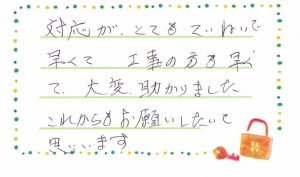 対応が、とてもていねいで
早くて 工事の方も早く
て、大変、助かりました
これからもお願いしたいと
思います